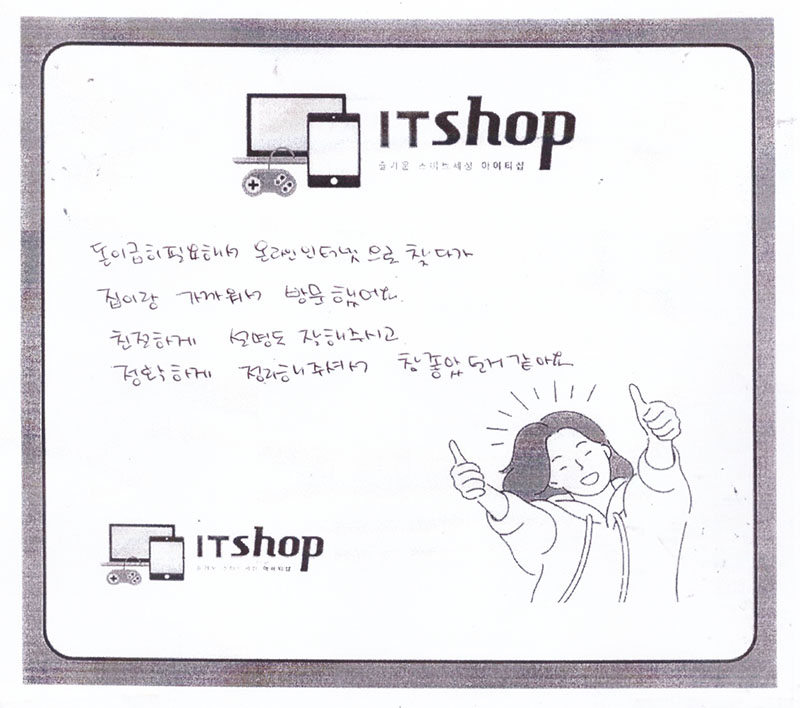 ITshop
즐거운 스마트세상 아이티샵
돈이급히필요해서 온라인인터넷으로 찾다가
집이랑 가까워서 방문했어요.
친절하게 설명도 잘해주시고
정확하게 정리해주셔서 참좋았던거같아요
ITshop
즐거운 스마트세상 아이티샵